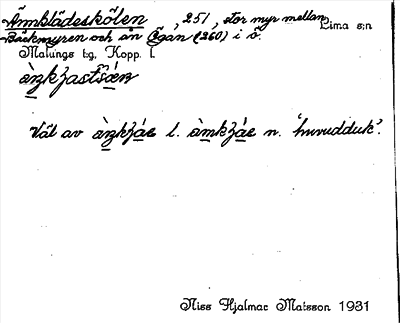 Ämklädeskölen, 251, stor myr mellan Lima s:n
Bäckmyren och ån Ögan (260) i ö.
Malungs tg, Kopp. l.
Väl av l. n. 'huvudduk'.
Niss Hjalmar Matsson 1931